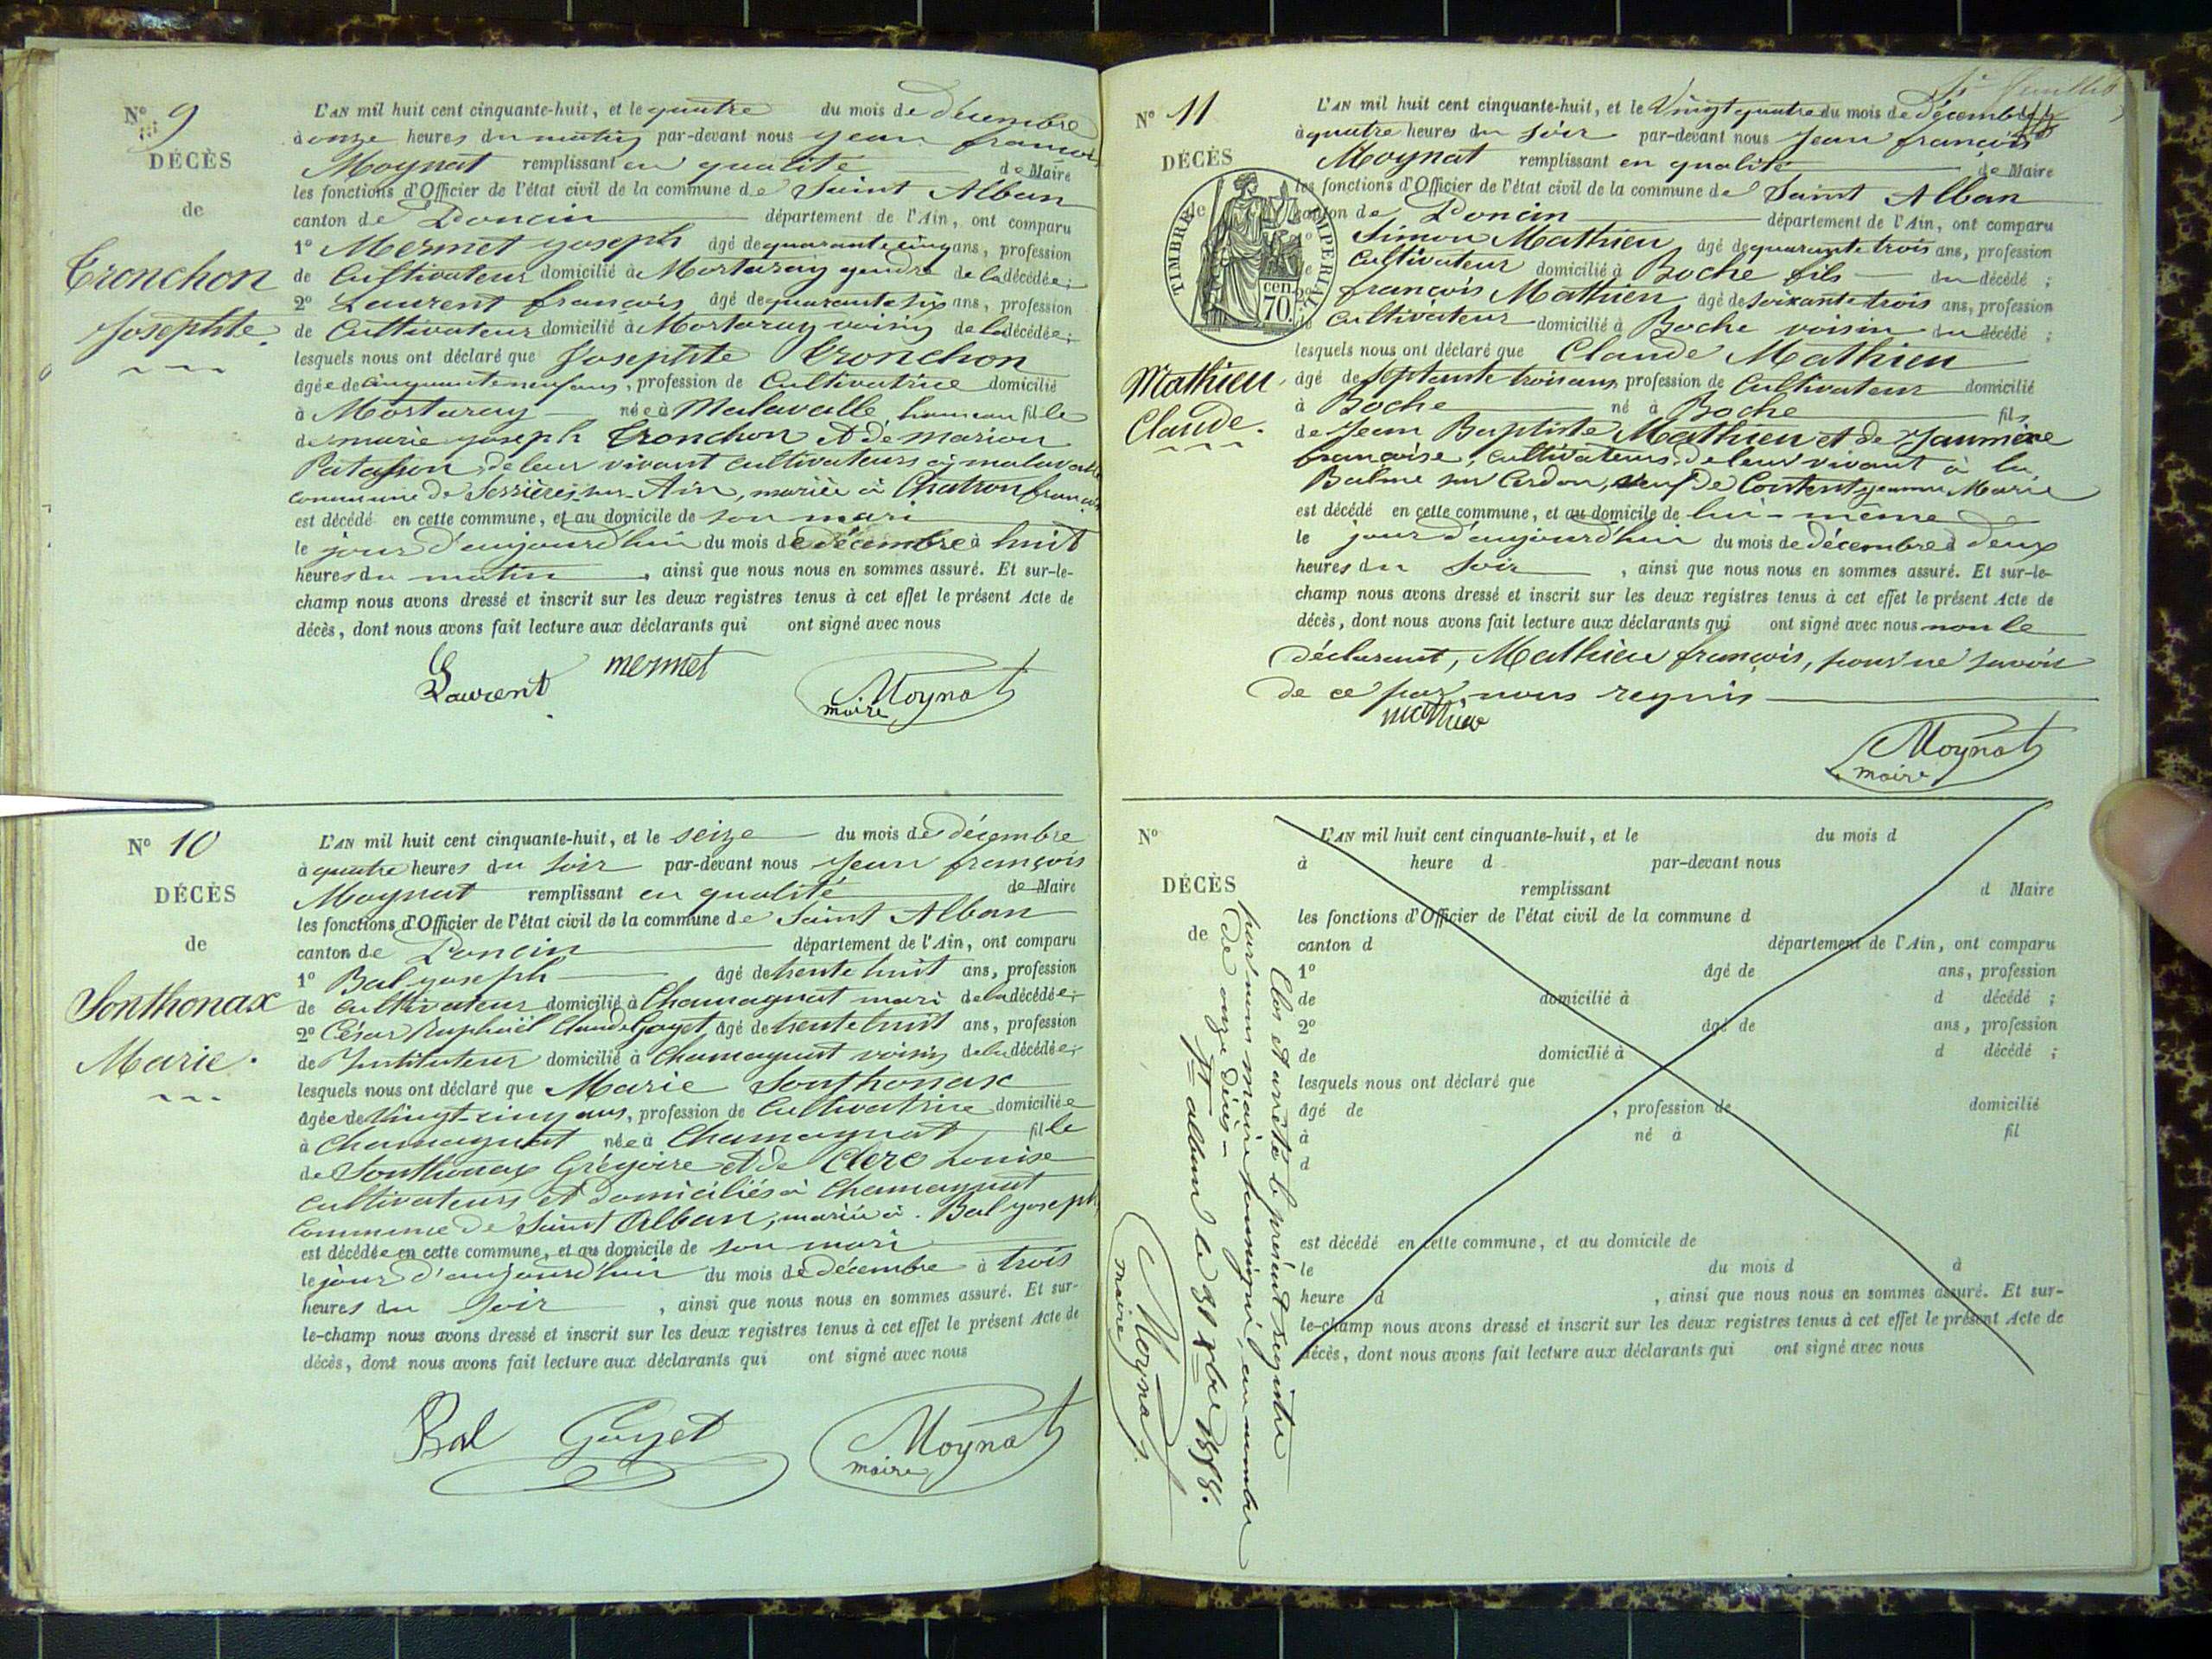 N° 9
DÉCÈS
de
Tronchon
Josephte.
L'AN mil huit cent cinquante-huit, et le quatre du mois de décembre
à onze heures du matin par-devant nous Jean françois
Moynat remplissant en qualité de Maire
les fonctions d'Officier de l'état civil de la commune de Saint Alban
canton de Poncin département de l'Ain, ont comparu
1° Mermet joseph âgé de quarante cinq ans, profession
de Cultivateur domicilié à Mortaray gendre de la décédée;
2° Laurent françois âgé de quarante six ans, profession
de Cultivateur domicilié à Mortaray voisin de la décédée;
lesquels nous ont déclaré que Josephte Tronchon
âgée de cinquante neuf ans, profession de Cultivatrice domicilié
à Mortaray née à Malavalle, hameau fille
de marie joseph Tronchon et de marion
de leur vivant cultivateurs à malavalle
commune de Serrières sur Ain, mariée à Chatron françois
est décédé en cette commune, et au domicile de son mari
le jour d'aujourd'hui du mois de décembre à huit
heures du matin, ainsi que nous nous en sommes assuré. Et sur-le-
champ nous avons dressé et inscrit sur les deux registres tenus à cet effet le présent Acte de
décès, dont nous avons fait lecture aux déclarants qui ont signé avec nous
Laurent mermet Moynat
maire
N° 10
DÉCÈS
de
Sonthonax
Marie.
L'AN mil huit cent cinquante-huit, et le seize du mois de décembre
à quatre heures du soir par-devant nous Jean françois
Moynat remplissant en qualité de Maire
les fonctions d'Officier de l'état civil de la commune de Saint Alban
canton de Poncin département de l'Ain, ont comparu
1° Bal joseph âgé de trente huit ans, profession
de cultivateur domicilié à Chamagnat mari de la décédée;
2° César Raphaël Claude Goyet, âgé de trente huit ans, profession
de Instituteur domicilié à Chamagnat voisin de la décédée;
lesquels nous ont déclaré que Marie Sonthonax
âgée de Vingt-cinq ans, profession de Cultivatrice domiciliée
à Chamagnat née à Chamagnat fille
de Sonthonax Grégoire et de Clerc Louise
cultivateurs et domiciliés à Chamagnat
Commune de Saint Alban, mariée à Bal joseph
est décédée en cette commune, et au domicile de son mari
le jour d'aujourd'hui du mois de décembre à trois
heures du soir, ainsi que nous nous en sommes assuré. Et sur-
le-champ nous avons dressé et inscrit sur les deux registres tenus à cet effet le présent Acte de
décès, dont nous avons fait lecture aux déclarants qui ont signé avec nous
Bal Goyet Moynat
maire
N° 11
DÉCÈS
TIMBRE IMPÉRIAL
cen.
70.
Mathieu
Claude.
L'AN mil huit cent cinquante-huit, et le Vingt quatre du mois de décembre
à quatre heures du soir par-devant nous Jean françois
Moynat remplissant en qualité de Maire
les fonctions d'Officier de l'état civil de la commune de Saint Alban
canton de Poncin département de l'Ain, ont comparu
Simon Mathieu, âgé de quarante trois ans, profession
Cultivateur domicilié à Boche fils du décédé;
2° françois Mathieu âgé de soixante trois ans, profession
Cultivateur domicilié à Boche voisin du décédé;
lesquels nous ont déclaré que Claude Mathieu
âgé de septante trois ans profession de Cultivateur domicilié
à Boche né à Boche fils
de Jean Baptiste Mathieu et de
françoise, cultivateurs de leur vivant à la
Balme sur Cerdon, veuf de Content jeanne Marie
est décédé en cette commune, et au domicile de lui-même
le jour d'aujourd'hui du mois de décembre à deux
heures du soir, ainsi que nous nous en sommes assuré. Et sur-le-
champ nous avons dressé et inscrit sur les deux registres tenus à cet effet le présent Acte de
décès, dont nous avons fait lecture aux déclarants qui ont signé avec nous non le
déclarant, Mathieu françois, pour ne savoir
de ce par nous requis
mathieu
Moynat
maire
N°
DÉCÈS
de
L'AN mil huit cent cinquante-huit, et le du mois d
à heure d par-devant nous
remplissant d Maire
les fonctions d'Officier de l'état civil de la commune d
canton d département de l'Ain, ont comparu
1° âgé de ans, profession
de domicilié à d décédé;
2° âgé de ans, profession
de domicilié à d décédé;
lesquels nous ont déclaré que
âgé de, profession de domicilié
à né à fil
d
est décédé en cette commune, et au domicile de
le du mois d à
heure d, ainsi que nous nous en sommes assuré. Et sur-
le-champ nous avons dressé et inscrit sur les deux registres tenus à cet effet le présent Acte de
décès, dont nous avons fait lecture aux déclarants qui ont signé avec nous
Clos et arrêté le présent registre
par nous maire soussigné, au nombre
de onze décès
St alban le 31 Xbre 1858.
Moynat
maire